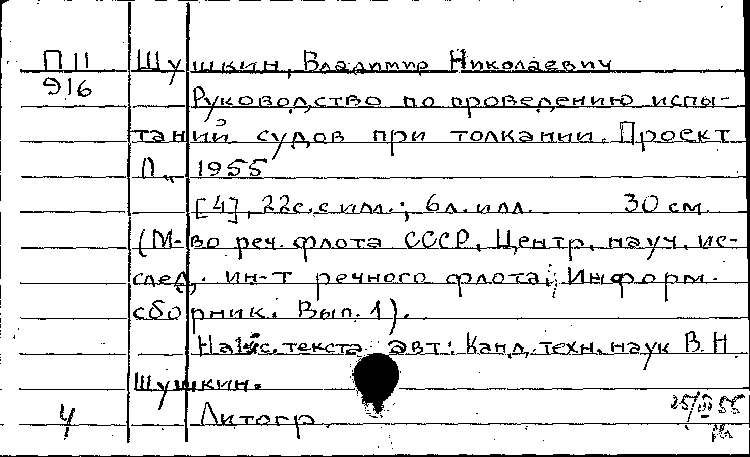 П 11 Шушкин, Владимир Николаевич
916
Руководство по проведению испы-
таний судов при толкании. Проект
Л., 1955
[4], 22с. с илл.; 6л. илл. 30 см.
(М-во реч. флота СССР. Центр. науч. ис-
след. ин-т речного флота. Информ.
сборник. Вып. 1).
текста авт: Канд. техн. наук В.Н.
Шушкин.
4 Литогр.
25/III 55